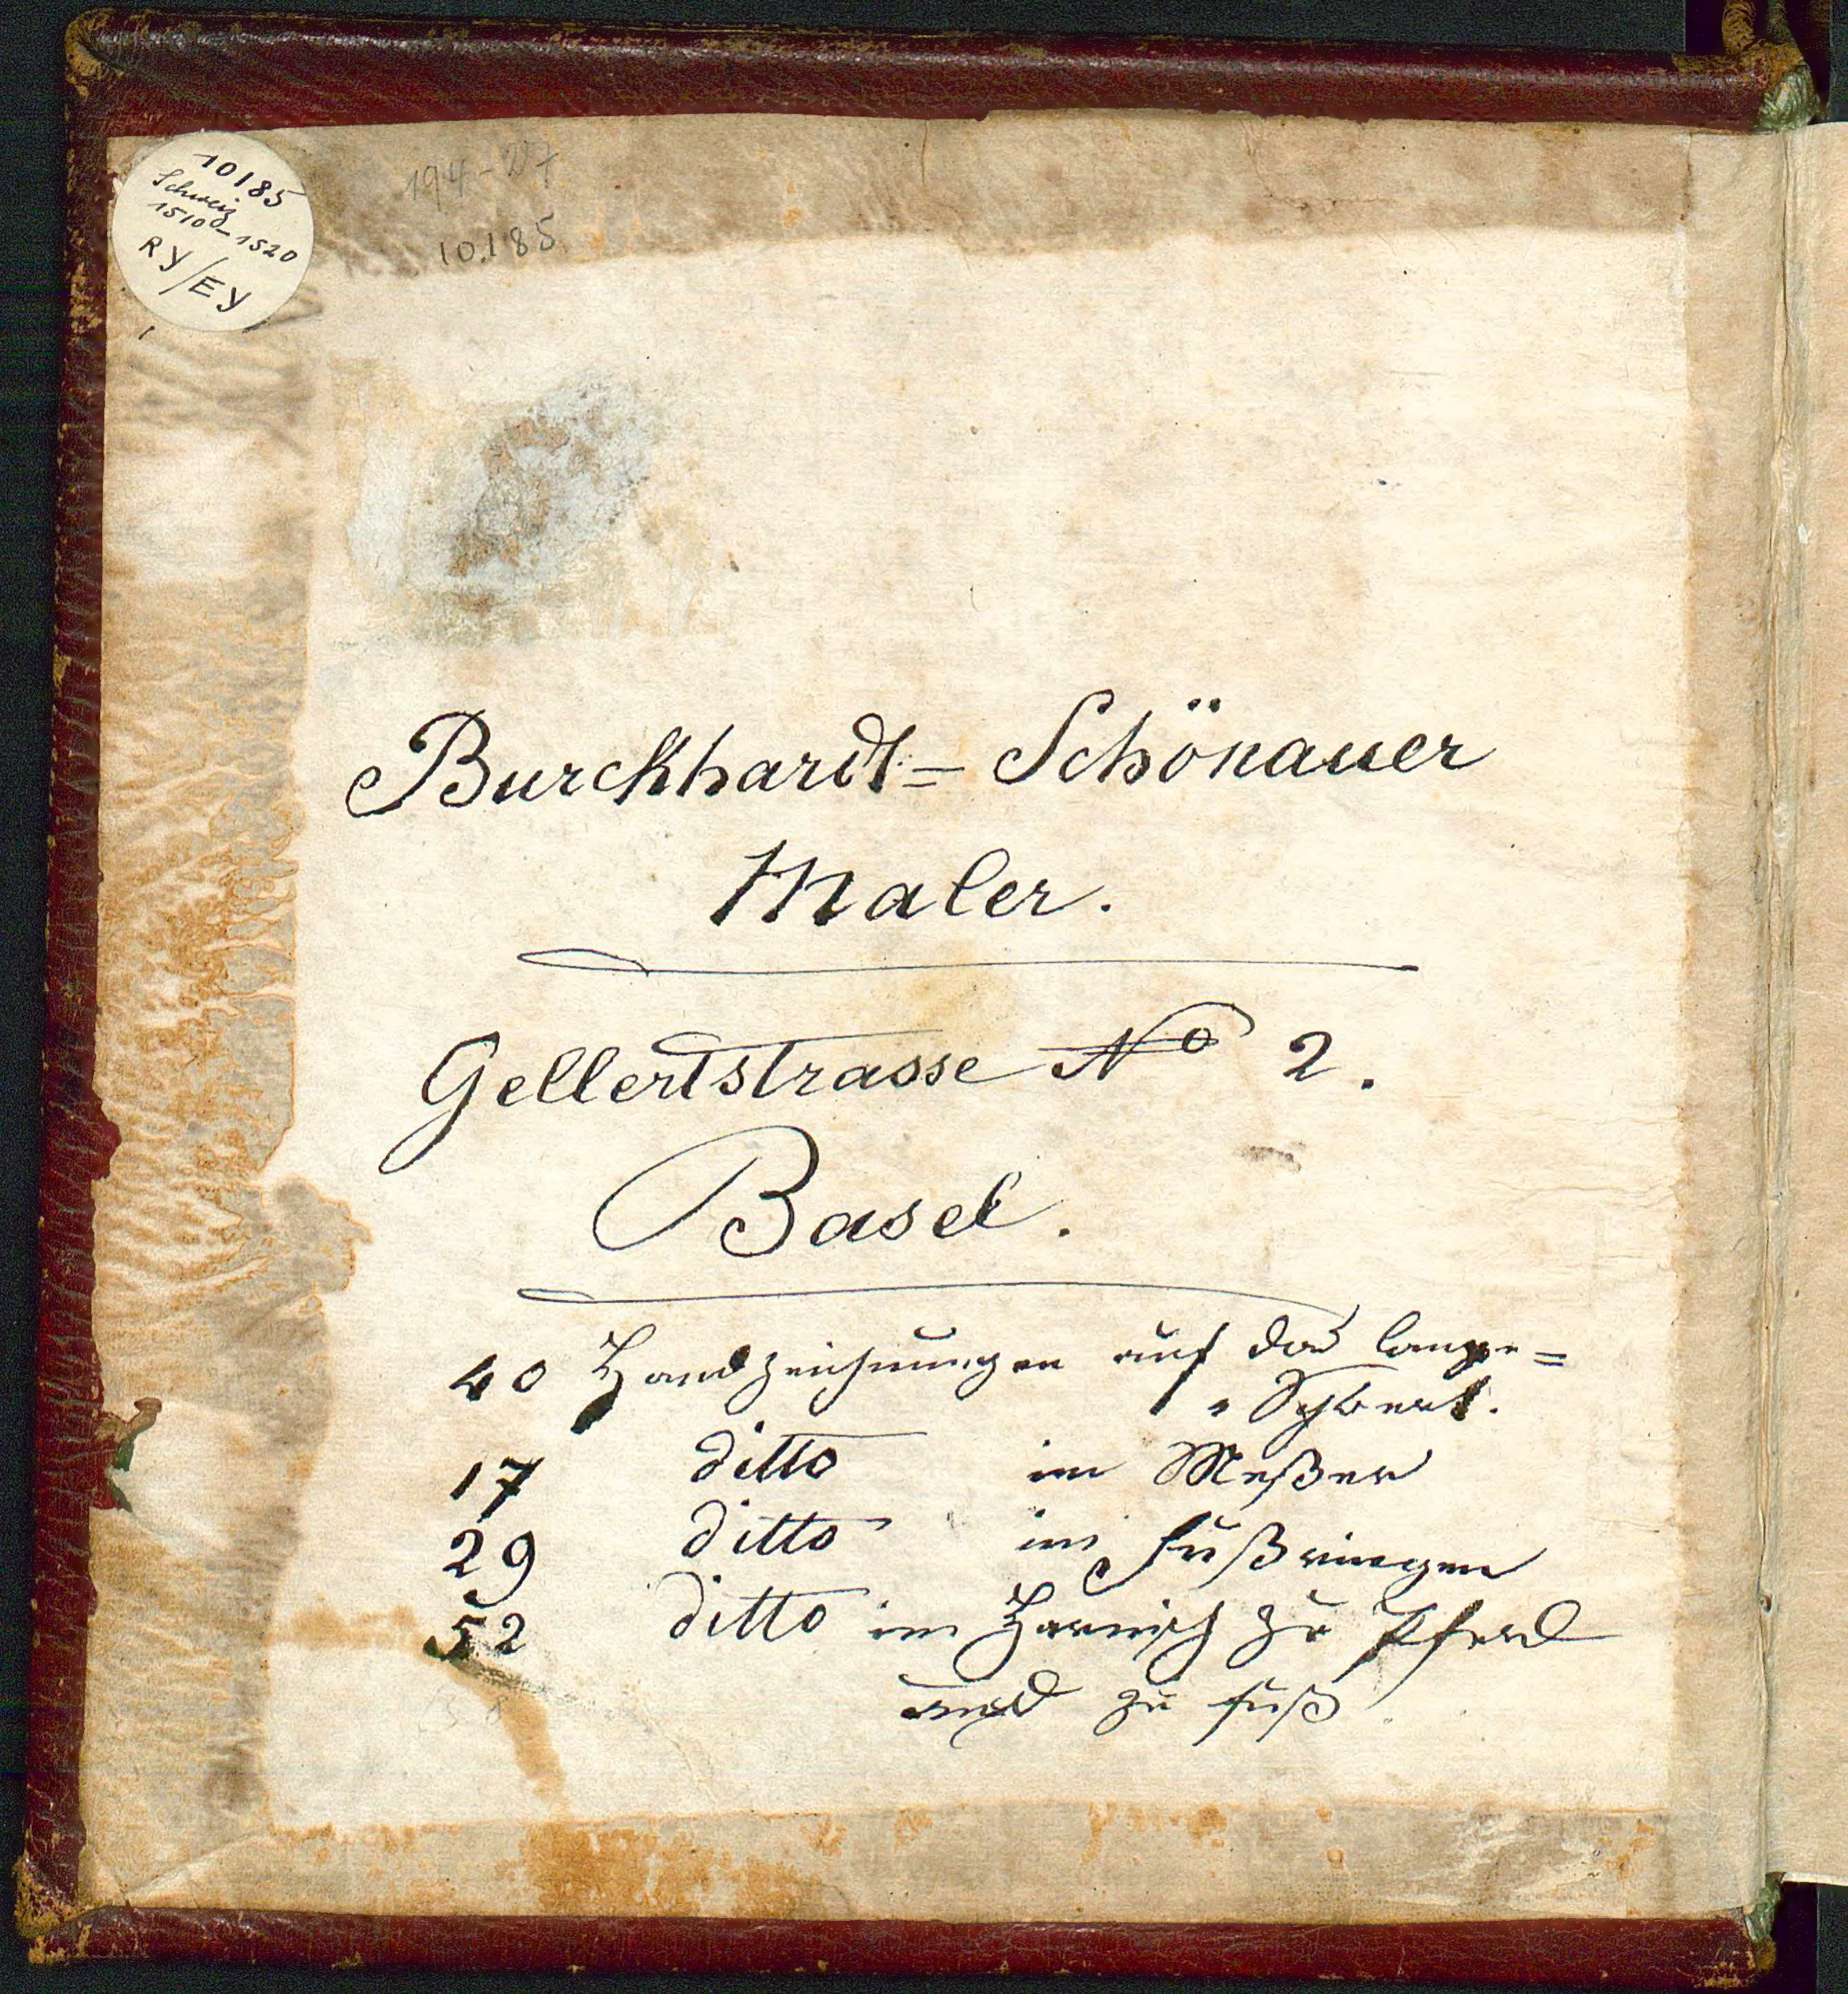 10185
Schweiz
1510-1520
RY/EY
10.185
Burckhardt= Schönauer
Maler.
Gellertstrasse No 2.
Basel.
40 Handzeichnungen auf das lange=
Schwert.
17 ditto im Meßer
29 ditto im Fußringen
52 ditto im Harnisch zu Pferd
und zu Fuß